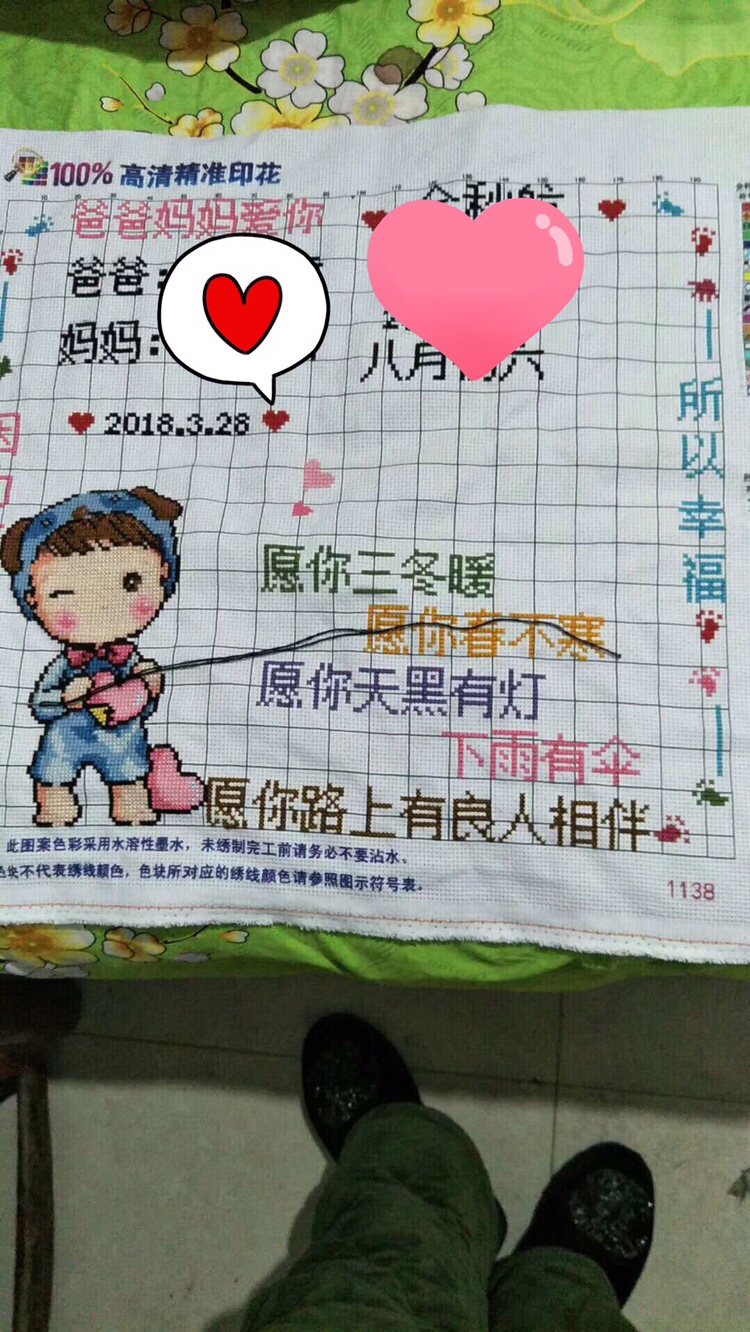 100% 高清精准印花
爸爸妈妈爱你
爸爸:
妈妈:
八月
六
2018.3.28
所以幸福
愿你三冬暖
愿你春不寒
愿你天黑有灯
下雨有伞
愿你路上有良人相伴
此图案色彩采用水溶性墨水，未绣制完工前请务必不要沾水。
色块不代表绣线颜色，色块所对应的绣线颜色请参照图示符号表。
1138